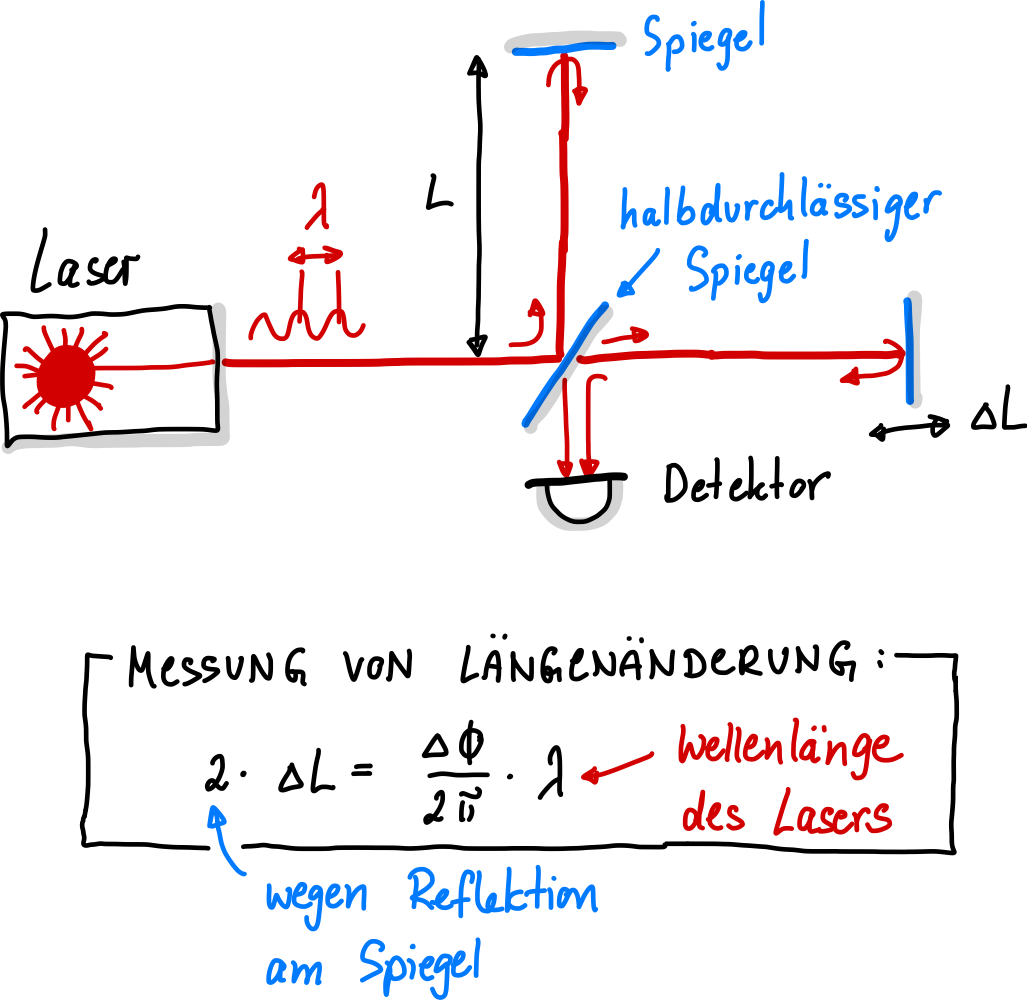 Spiegel
L
λ
halbdurchlässiger
Spiegel
Laser
ΔL
Detektor
MESSUNG VON LÄNGENÄNDERUNG:
2 · ΔL = Δϕ / 2π · λ
Wellenlänge
des Lasers
wegen Reflektion
am Spiegel